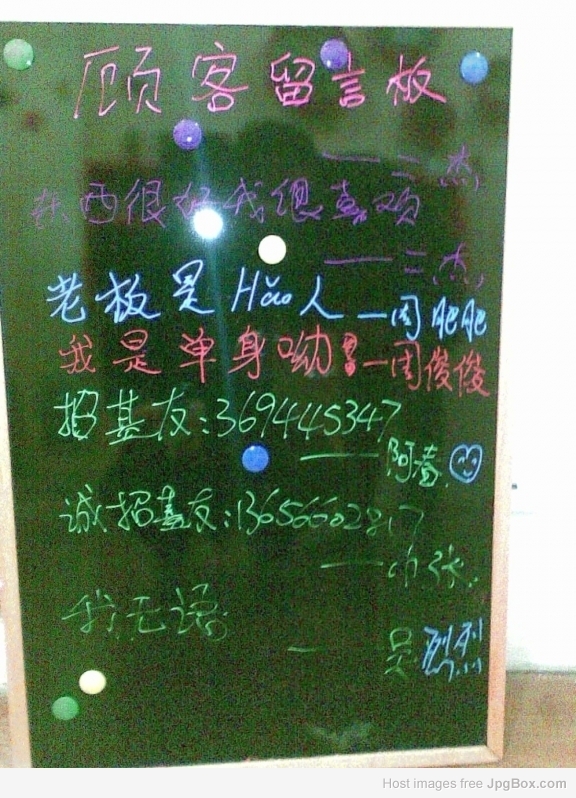 顾客留言板
——二杰
东西很好我很喜欢
——二杰
老板是Hǎo人 —周肥肥
我是单身呦!!! —周俊俊
招基友:369445347
——阿春
诚招基友:13656602817
——小张
我无语
——吴烈烈
Host images free JpgBox.com